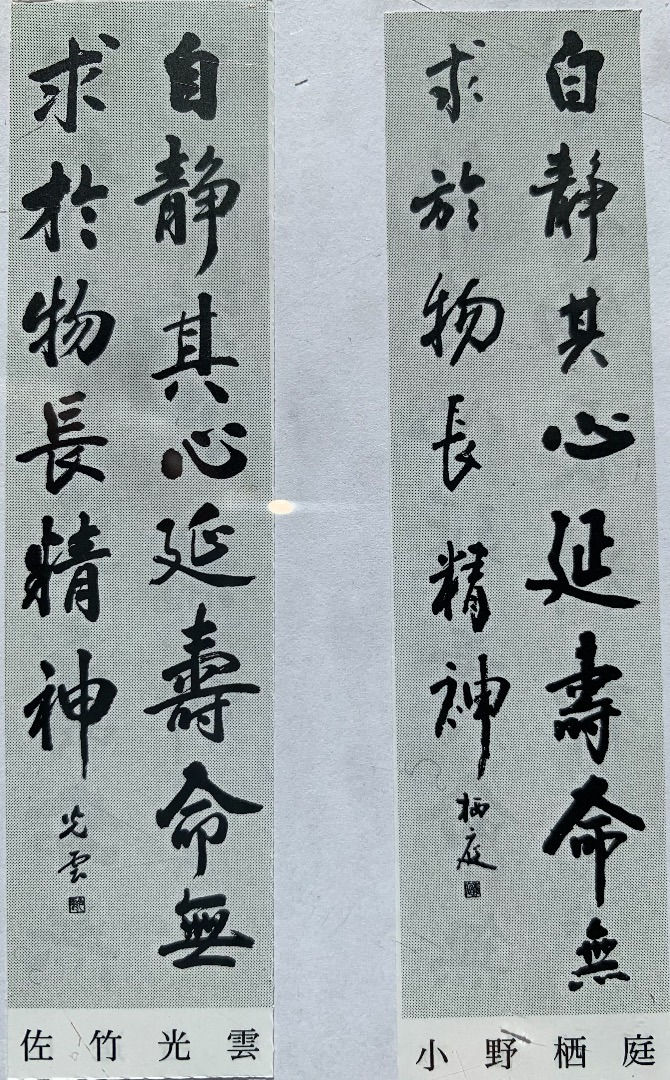 自静其心延壽命無
求於物長精神
栖庭
小野栖庭
自静其心延壽命無
求於物長精神
光雲
佐竹光雲